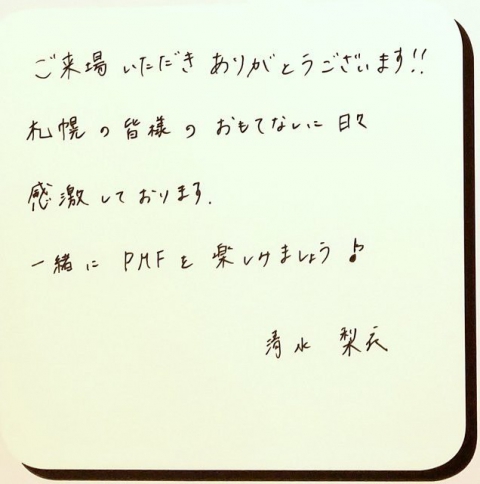 ご来場いただきありがとうございます!!
札幌の皆様のおもてなしに日々
感激しております.
一緒にPMFを楽しみましょう♪
清水 梨衣